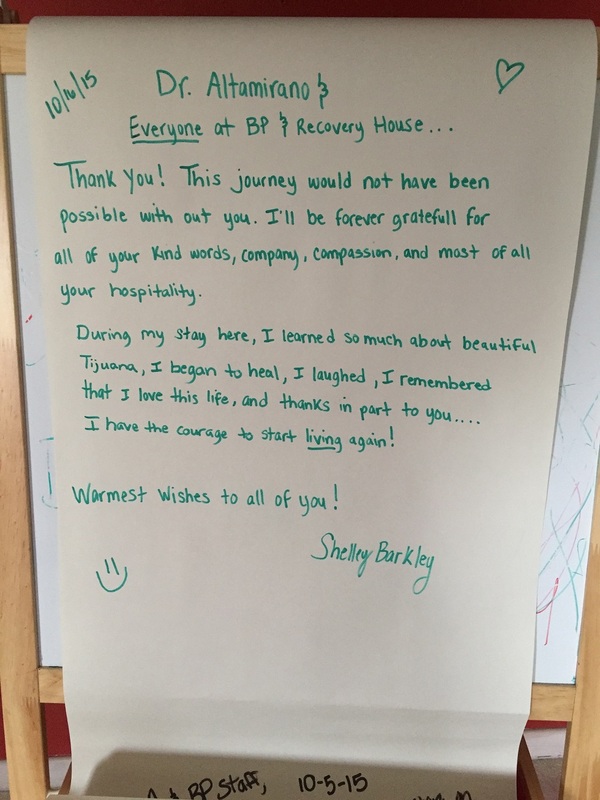 10/16/15
Dr. Altamirano &
Everyone at BP & Recovery House...
Thank You! This journey would not have been
possible with out you. I'll be forever gratefull for
all of your kind words, company, compassion, and most of all
your hospitality.
During my stay here, I learned so much about beautiful
Tijuana, I began to heal, I laughed, I remembered
that I love this life, and thanks in part to you....
I have the courage to start living again!
Warmest Wishes to all of you!
Shelley Barkley
& BP Staff, 10-5-15